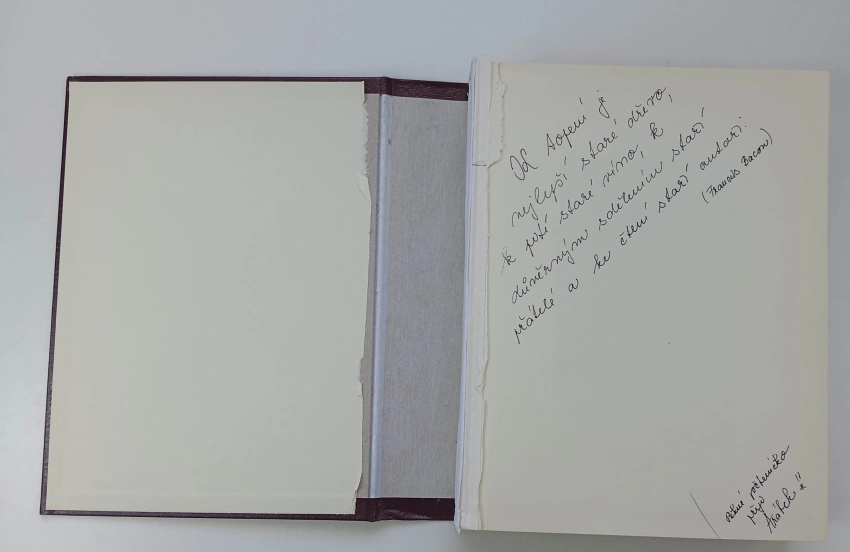 Od topení je
nejlepší staré dřevo,
k pití staré víno, k
důvěrným sdělením staří
přátelé a ke čtení staří autaři.
(Francis Bacon)
Pěkné počteníčko
přeje